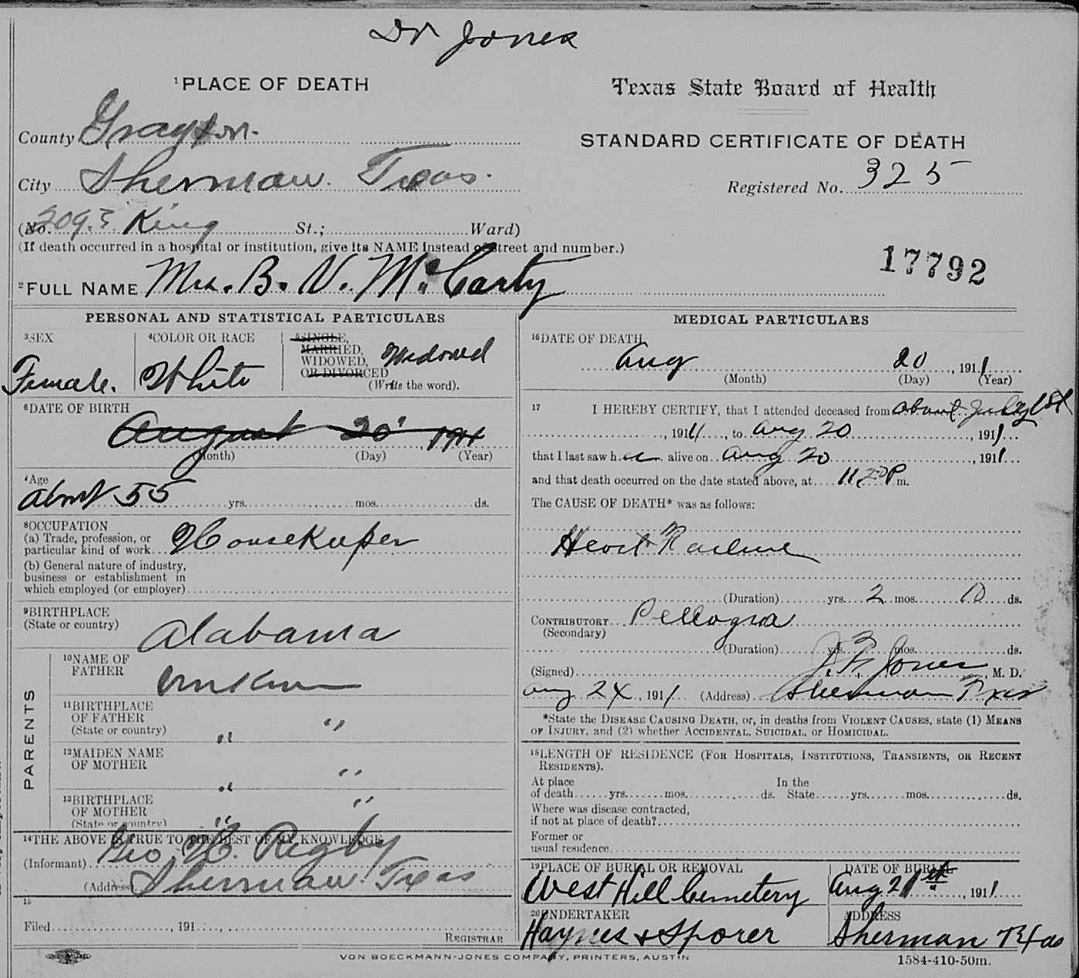 Dr Jones
1 PLACE OF DEATH
County Grayson.
City Sherman. Texas.
(No. 209 King St.; Ward)
(If death occurred in a hospital or institution, give its NAME instead of street and number.)
Texas State Board of Health
STANDARD CERTIFICATE OF DEATH
Registered No. 325
17792
2 FULL NAME Mrs. B. V. McCarty
PERSONAL AND STATISTICAL PARTICULARS
3 SEX
Female.
4 COLOR OR RACE
White
SINGLE,
MARRIED,
WIDOWED, Widowed
OR DIVORCED
(Write the word).
6 DATE OF BIRTH
August 20 1911
(Month) (Day) (Year)
7 Age
about 55 yrs. mos. ds.
8 OCCUPATION
(a) Trade, profession, or
particular kind of work Housekeeper
(b) General nature of industry,
business or establishment in
which employed (or employer)
9 BIRTHPLACE
(State or country) Alabama
PARENTS
10 NAME OF
FATHER
11 BIRTHPLACE
OF FATHER
(State or country) " "
12 MAIDEN NAME
OF MOTHER " "
13 BIRTHPLACE
OF MOTHER
(State or country) " "
14 THE ABOVE IS TRUE TO THE BEST OF MY KNOWLEDGE
(Informant) Geo H. Rigby
(Address) Sherman Texas
15
Filed , 191
REGISTRAR
MEDICAL PARTICULARS
16 DATE OF DEATH
Aug 20, 1911
(Month) (Day) (Year)
17 I HEREBY CERTIFY, that I attended deceased from about July 1st
, 1911, to Aug 20, 1911
that I last saw h er alive on Aug 20, 1911
and that death occurred on the date stated above, at 11 P m.
The CAUSE OF DEATH* was as follows:
Heart Failure
(Duration) yrs. 2 mos. 10 ds.
CONTRIBUTORY Pellagra
(Secondary)
(Duration) yrs. mos. ds.
(Signed) Jones M. D.
Aug 24, 1911 (Address) Sherman Texas
*State the DISEASE CAUSING DEATH, or, in deaths from VIOLENT CAUSES, state (1) MEANS
OF INJURY, and (2) whether ACCIDENTAL, SUICIDAL, OR HOMICIDAL.
18 LENGTH OF RESIDENCE (FOR HOSPITALS, INSTITUTIONS, TRANSIENTS, OR RECENT
RESIDENTS).
At place In the
of death yrs. mos. ds. State yrs. mos. ds.
Where was disease contracted,
if not at place of death?
Former or
usual residence
19 PLACE OF BURIAL OR REMOVAL
West Hill Cemetery
DATE OF BURIAL
Aug 21st, 1911
20 UNDERTAKER
Haynes & Sporer
ADDRESS
Sherman Texas
VON BOECKMANN-JONES COMPANY, PRINTERS, AUSTIN
1584-410-50m.